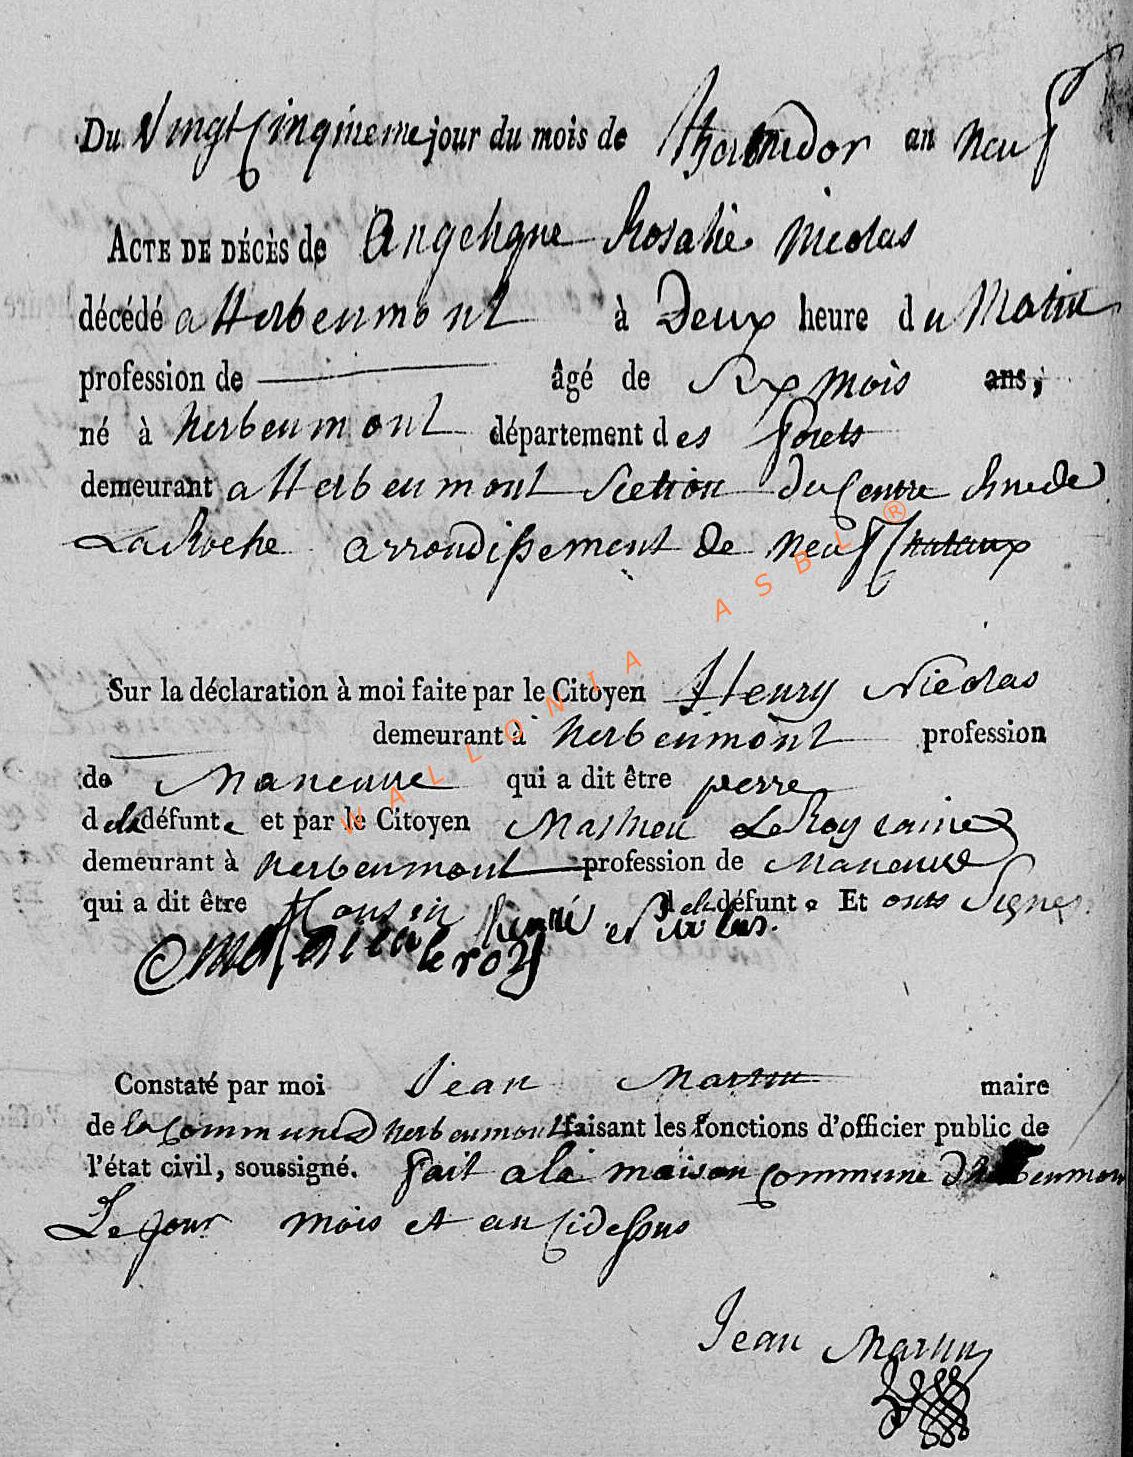 Du Vingt Cinqiieme jour du mois de Thermedor an neuf
ACTE DE DÉCÈS de Angelique Rosalie Nicolas
décédé a Herbeumont à Deux heure du Matin
profession de âgé de Six mois ans,
né à herbeumont département des forets
demeurant a Herbeumont Section du Centre Rue de
La Roche arrondissement de neuf Chataux
Sur la déclaration à moi faite par le Citoyen Henry Nicolas
demeurant à herbeumont profession
de Maneuvre qui a dit être perre
de la défunte et par le Citoyen Mathieu Le Roy
demeurant à herbeumont profession de Maneuvre
qui a dit être Cousin de la défunte Et onts Signes
Henri Nicolas
le roy
Constaté par moi Jean Martin maire
de la Commune D herbeumont faisant les fonctions d'officier public de
l'état civil, soussigné. fait a la maison Commune
Le jour mois et an Cidessus
Jean Martin
WALLONIA ASBL ®